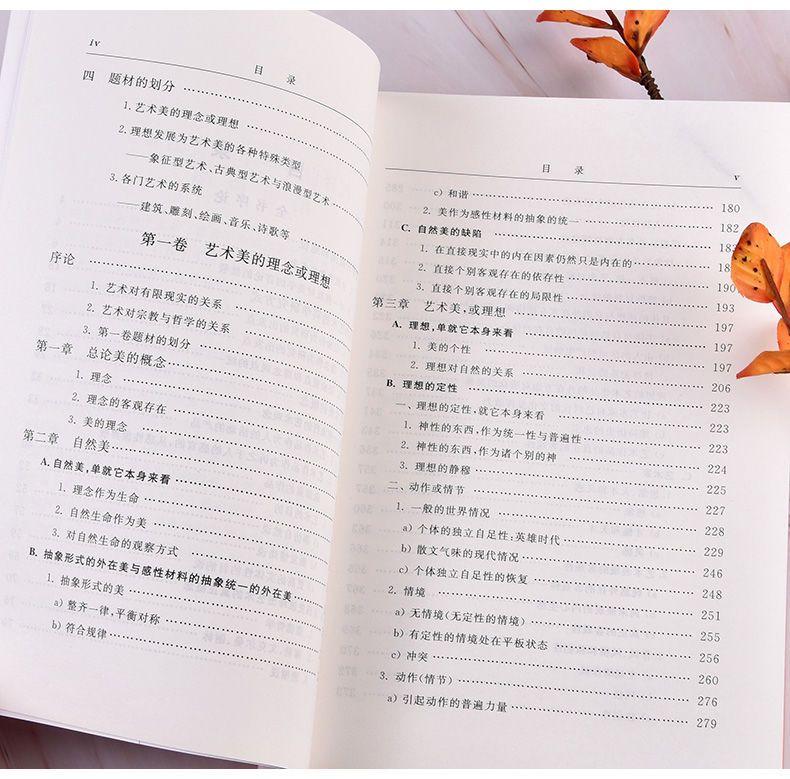 iv
目 录
四 题材的划分
1. 艺术美的理念或理想
2. 理想发展为艺术美的各种特殊类型
——象征型艺术、古典型艺术与浪漫型艺术
3. 各门艺术的系统
——建筑、雕刻、绘画、音乐、诗歌等
第一卷 艺术美的理念或理想
序论
1. 艺术对有限现实的关系
2. 艺术对宗教与哲学的关系
3. 第一卷题材的划分
第一章 总论美的概念
1. 理念
2. 理念的客观存在
3. 美的理念
第二章 自然美
A. 自然美,单就它本身来看
1. 理念作为生命
2. 自然生命作为美
3. 对自然生命的观察方式
B. 抽象形式的外在美与感性材料的抽象统一的外在美
1. 抽象形式的美
a) 整齐一律,平衡对称
b) 符合规律
目 录 v
c) 和谐 180
2. 美作为感性材料的抽象的统一 182
C. 自然美的缺陷 183
1. 在直接现实中的内在因素仍然只是内在的
2. 直接个别客观存在的依存性 190
3. 直接个别客观存在的局限性 193
第三章 艺术美,或理想 197
A. 理想,单就它本身来看 197
1. 美的个性 197
2. 理想对自然的关系 206
B. 理想的定性 223
一、理想的定性,就它本身来看 223
1. 神性的东西,作为统一性与普遍性 223
2. 神性的东西,作为诸个别的神 224
3. 理想的静穆 225
二、动作或情节 227
1. 一般的世界情况 228
a) 个体的独立自足性:英雄时代 229
b) 散文气味的现代情况 246
c) 个体独立自足性的恢复 248
2. 情境 251
a) 无情境(无定性的情境) 255
b) 有定性的情境处在平板状态 256
c) 冲突 260
3. 动作(情节) 276
a) 引起动作的普遍力量 279